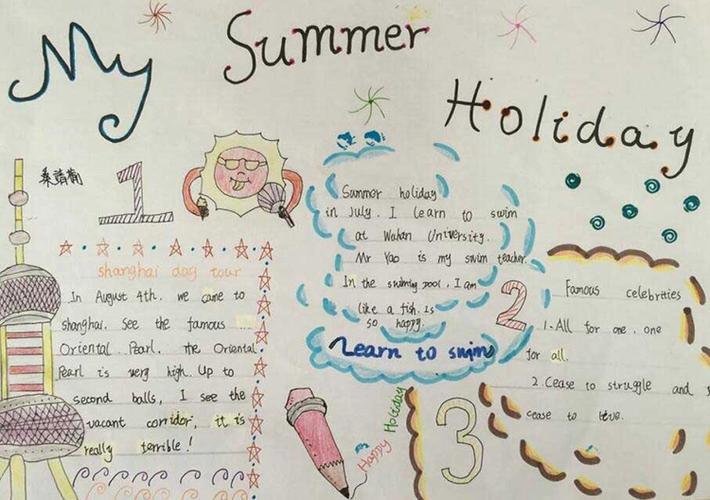 My Summer Holiday
1
shanghai day tour
In August 4th. we came to
shanghai. See the famous
Oriental Pearl. the Oriental
Pearl is very high. Up to
second balls, I see the
vacant corridor, it is
really terrible!
Summer holiday
in July. I learn to swim
at Wuhan University.
Mr Yao is my swim teacher.
In the swimming pool, I am
like a fish. Is
so happy.
Learn to swim
2
Famous celebrities
1. All for one. one
for all.
2. Cease to struggle and
cease to live.
3
my Happy Holiday